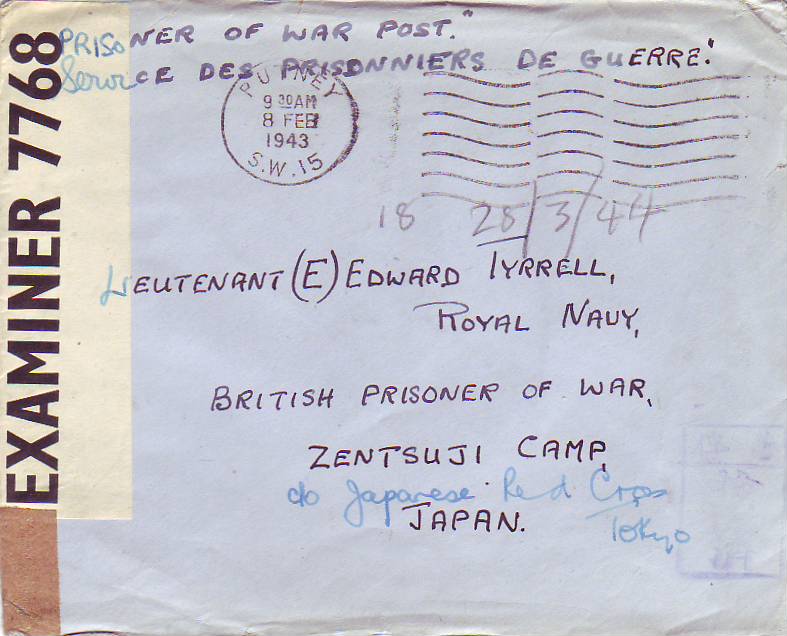 EXAMINER 7768
PRISONER OF WAR POST."
Service DES PRISONNIERS DE GUERRE."
PUTNEY
9 30AM
8 FEB
1943
S.W.15
18 28/3/44
LIEUTENANT (E) EDWARD TYRRELL,
ROYAL NAVY,
BRITISH PRISONER OF WAR,
ZENTSUJI CAMP,
c/o Japanese Red Cross
JAPAN. Tokyo